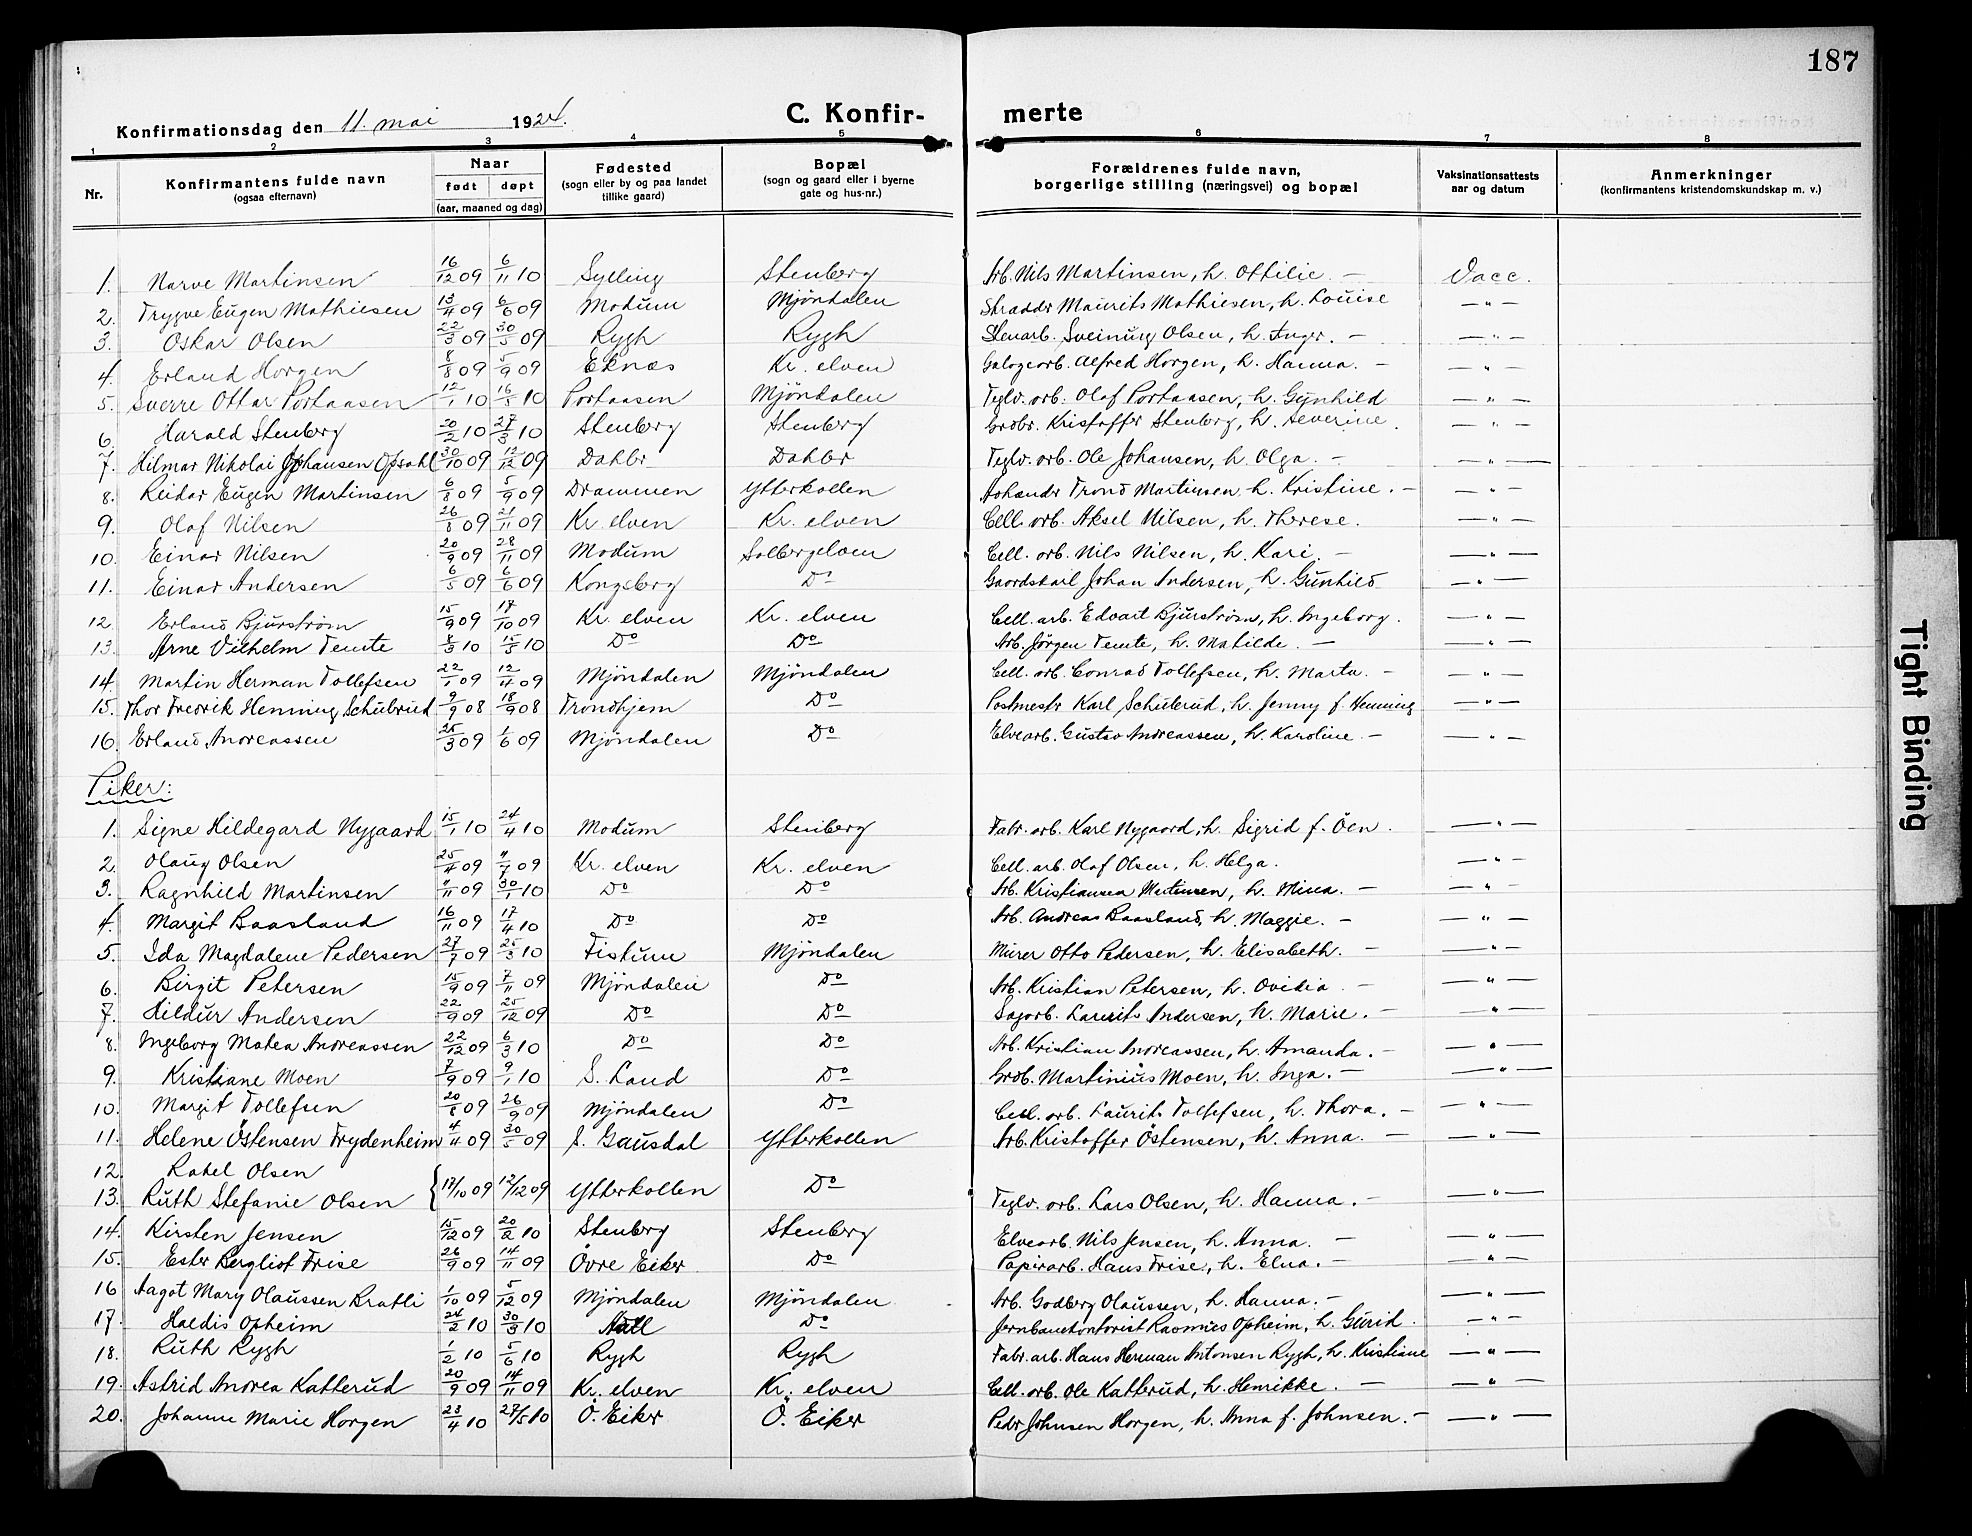 187
Konfirmationsdag den 11. mai 1924.
C. Konfir- merte
1 2 3 4 5 6 7 8
Nr. | Konfirmantens fulde navn (ogsaa efternavn) | Naar født døpt (aar, maaned og dag) | Fødested (sogn eller by og paa landet tillike gaard) | Bopæl (sogn og gaard eller i byerne gate og hus-nr.) | Forældrenes fulde navn, borgerlige stilling (næringsvei) og bopæl | Vaksinationsattests aar og datum | Anmerkninger (konfirmantens kristendomskundskap m. v.)
1. Narve Martinsen 16/12 09 6/11 10 Sylling Stenberg Arb. Nils Martinsen, h. Ottilie. — Vacc.
2. Trygve Eugen Mathiesen 13/4 09 6/6 09 Modum Mjöndalen Skrædder Maurits Mathiesen, h. Louise — " —
3. Oskar Olsen 22/3 09 30/5 09 Rygh Rygh Stenarb. Sveinung Olsen, h. Inger. — — " —
4. Erland Horgen 8/8 09 5/9 09 Eknæs Kr. elven Galogearb. Alfred Horgen, h. Hanna. — — " —
5. Sverre Ottar Portaasen 12/1 10 16/5 10 Portaasen Mjöndalen Teglv. arb. Olaf Portaasen, h. Gunhild — " —
6. Harald Stenberg 20/2 10 27/3 10 Stenberg Stenberg Grdbr. Kristoffer Stenberg, h. Severine. — " —
7. Hilmar Nikolai Johansen Opsahl 30/10 09 12/12 09 Dahlbr Dahlbr Teglv. arb. Ole Johansen, h. Olga. — — " —
8. Reidar Eugen Martinsen 6/8 09 5/9 09 Drammen Ytterkollen Trond Martinsen, h. Kristine. — — " —
9. Olaf Nilsen 26/8 09 21/11 09 Kr. elven Kr. elven Cell. arb. Aksel Nilsen, h. Therese. — " —
10. Einar Nilsen 20/9 09 28/11 09 Modum Solbergelven Cell. arb. Nils Nilsen, h. Kari. — — " —
11. Einar Andersen 6/5 09 6/6 09 Kongsberg Do Gaardskarl Johan Andersen, h. Gunhild — " —
12. Erland Bjurström 15/9 09 17/10 09 Kr. elven Kr. elven Cell. arb. Edvart Bjurström, h. Ingeborg. — " —
13. Arne Vilhelm Temte 8/3 10 15/5 10 Do Do Arb. Jörgen Temte, h. Matilde. — — " —
14. Martin Herman Tollefsen 22/1 09 12/11 09 Mjöndalen Mjöndalen Cell. arb. Conrad Tollefsen, h. Marta. — — " —
15. Thor Fredrik Henning Schulerud 9/9 08 18/9 08 Trondhjem Do Postmestr Karl Schulerud, h. Jenny f. Henning — " —
16. Erland Andreassen 25/3 09 1/6 09 Mjöndalen Do Elvearb. Gustav Andreassen, h. Karoline. — — " —
Piker:
1. Signe Hildegard Nygaard 15/1 10 24/4 10 Modum Stenberg Fabr. arb. Karl Nygaard, h. Sigrid f. Öen. — " —
2. Olaug Olsen 25/4 09 11/7 09 Kr. elven Kr. elven Cell. arb. Olaf Olsen, h. Helga. — " —
3. Ragnhild Martinsen 11/11 09 30/1 10 Do Do Arb. Kristiansen Martinsen, h. Mina. — — " —
4. Margit Baasland 16/11 09 17/4 10 Do Do Arb. Andreas Baasland, h. Maggie. — — " —
5. Ida Magdalene Pedersen 27/7 09 25/3 10 Fiskum Mjöndalen Murer Otto Pedersen, h. Elisabeth. — — " —
6. Birgit Petersen 15/9 09 7/11 09 Mjöndalen Do Arb. Kristian Petersen, h. Ovidia. — — " —
7. Hildur Andersen 22/9 09 25/12 09 Do Do Sagarb. Laurits Andersen, h. Marie. — — " —
8. Ingeborg Matea Andreassen 22/12 09 6/3 10 Do Do Arb. Kristian Andreassen, h. Amanda. — — " —
9. Kristiane Moen 7/9 09 9/1 10 S. Land Do Grdb. Martinius Moen, h. Inga. — — " —
10. Margit Tollefsen 20/8 09 26/9 09 Mjöndalen Do Cell. arb. Laurits Tollefsen, h. Thora. — — " —
11. Helene Östensen Frydenheim 4/4 09 30/5 09 S. Gausdal Ytterkollen Arb. Kristoffer Östensen, h. Anna. — — " —
12. Rakel Olsen
13. Ruth Stefanie Olsen { 17/10 09 12/12 09 Ytterkollen Do Teglv. arb. Lars Olsen, h. Hanna. — — " —
14. Kirsten Jensen 15/12 09 20/2 10 Stenberg Stenberg Elvearb. Nils Jensen, h. Anna. — — " —
15. Ester Bergliot Frise 26/9 09 14/11 09 Övre Eiker Do Papirarb. Hans Frise, h. Elna. — — " —
16. Aagot Mary Olaussen Bratli 1/10 09 5/12 09 Mjöndalen Mjöndalen Arb. Godberg Olaussen, h. Hanna. — — " —
17. Haldis Opheim 24/2 10 30/3 10 Aall Do Jernbanekontorist Rasmus Opheim, h. Gurid. — " —
18. Ruth Rygh 1/2 10 5/6 10 Rygh Rygh Fabr. arb. Hans Herman Antonsen Rygh, h. Kristiane — " —
19. Astrid Andrea Katterud 20/9 09 14/11 09 Kr. elven Kr. elven Cell. arb. Ole Katterud, h. Henrikke. — — " —
20. Johanne Marie Horgen 23/4 10 27/5 10 Ö. Eiker Ö. Eiker Peder Johnsen Horgen, h. Anna f. Johnsen. — — " —
Tight Binding